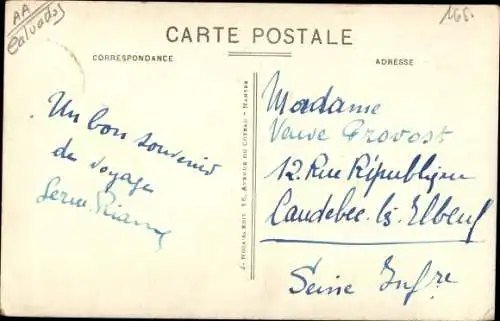 AA
Calvados
165.
CARTE POSTALE
CORRESPONDANCE
ADRESSE
Un bon souvenir
du voyage
J. NOZAIS EDIT. 15, AVENUE DU COTEAU - NANTES
Madame
Veuve Provost
12. Rue République
Caudebec-ls-Elbeuf
Seine Infre